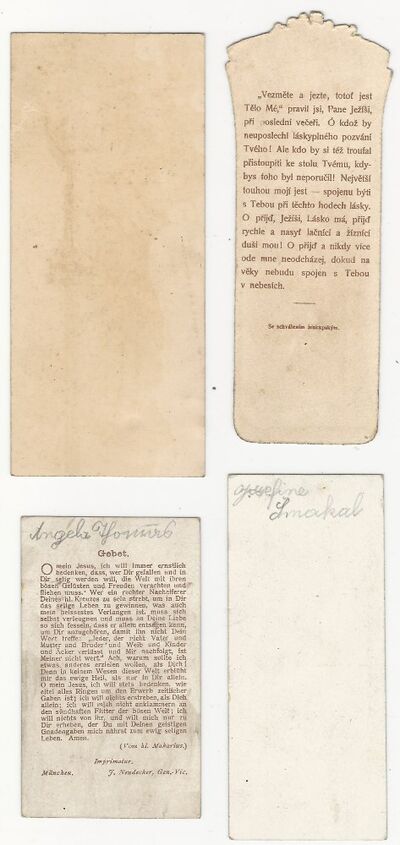 „Vezměte a jezte, totoť jest
Tělo Mé," pravil jsi, Pane Ježíši,
při poslední večeři. Ó kdož by
neuposlechl láskyplného pozvání
Tvého! Ale kdo by si též troufal
přistoupiti ke stolu Tvému, kdy-
bys toho byl neporučil! Největší
touhou mojí jest — spojenu býti
s Tebou při těchto hodech lásky.
O přijď, Ježíši, Lásko má, přijď
rychle a nasyť lačnící a žíznící
duši mou! O přijď a nikdy více
ode mne neodcházej, dokud na
věky nebudu spojen s Tebou
v nebesích.
Se schválením biskupským.
Angela
Gebet.
O mein Jesus, ich will immer ernstlich
bedenken, dass, wer Dir gefallen und in
Dir selig werden will, die Welt mit ihren
bösen Gelüsten und Freuden verachten und
fliehen muss." Wer ein rechter Nacheiferer
Deines hl. Kreuzes zu sein strebt, um in Dir
das selige Leben zu gewinnen, was auch
mein heissestes Verlangen ist, muss sich
selbst verleugnen und muss an Deine Liebe
so sich fesseln, dass er allem entsagen kann,
um Dir anzugehören, damit ihn nicht Dein
Wort treffe: „Jeder, der nicht Vater und
Mutter und Bruder und Weib und Kinder
und Äcker verlässt und Mir nachfolgt, ist
Meiner nicht wert." Ach, warum sollte ich
etwas anderes erzielen wollen, als Dich!
Denn in keinem Wesen dieser Welt erblüht
mir das ewige Heil, als nur in Dir allein.
O mein Jesus, ich will stets bedenken, wie
eitel alles Ringen um den Erwerb zeitlicher
Gaben ist; ich will nichts erstreben, als Dich
allein; ich will mich nicht anklammern an
den sündhaften Flitter der bösen Welt; ich
will nichts von ihr, und will mich nur zu
Dir erheben, der Du mit Deinen geistigen
Gnadengaben mich nährst zum ewig seligen
Leben. Amen.
(Vom hl. Makarius.)
Imprimatur.
München. J. Neudecker, Gen.-Vic.
Smakal